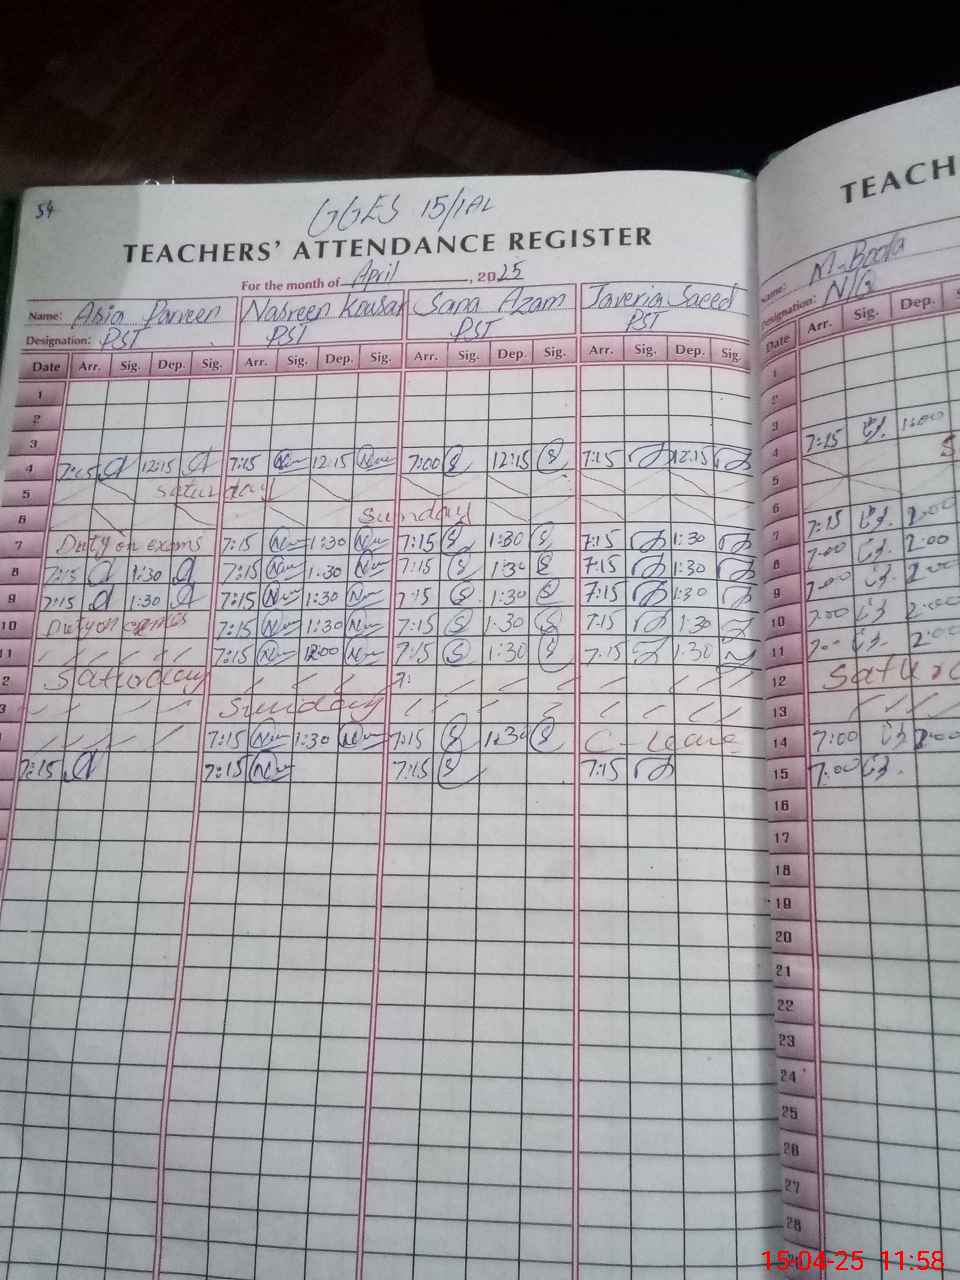 54
GGES 15/1AL
TEACHERS' ATTENDANCE REGISTER
For the month of April, 2025
Name: Asia Parveen Nasreen Kousar Sana Azam Javeria Saeed
Designation: PST PST PST PST
Date Arr. Sig. Dep. Sig. Arr. Sig. Dep. Sig. Arr. Sig. Dep. Sig. Arr. Sig. Dep. Sig.
1
2
3
4 7:15 12:15 7:15 12:15 7:00 12:15 7:15 12:15
5 Saturday
6 Sunday
7 Duty on exams 7:15 1:30 7:15 1:30 7:15 1:30
8 7:15 1:30 7:15 1:30 7:15 1:30 7:15 1:30
9 7:15 1:30 7:15 1:30 7:15 1:30 7:15 1:30
10 Duty on exams 7:15 1:30 7:15 1:30 7:15 1:30
11 7:15 7:15 1:30 7:15 1:30
2 Saturday 7:
3 Sunday
7:15 1:30 7:15 1:30 C-Leave
7:15 7:15 7:15 7:15
TEACH
Name:
Designation:
Date Arr. Sig. Dep.
1
2
3 7:15 1:00
4
5
6 7:15 2:00
7 7:00 2:00
8 7:00 2:00
9
10 7:00 2:00
11 2:00
12 Satur
13
14 7:00 2:00
15 7:00
16
17
18
19
20
21
22
23
24
25
26
27
28
15-04-25 11:58